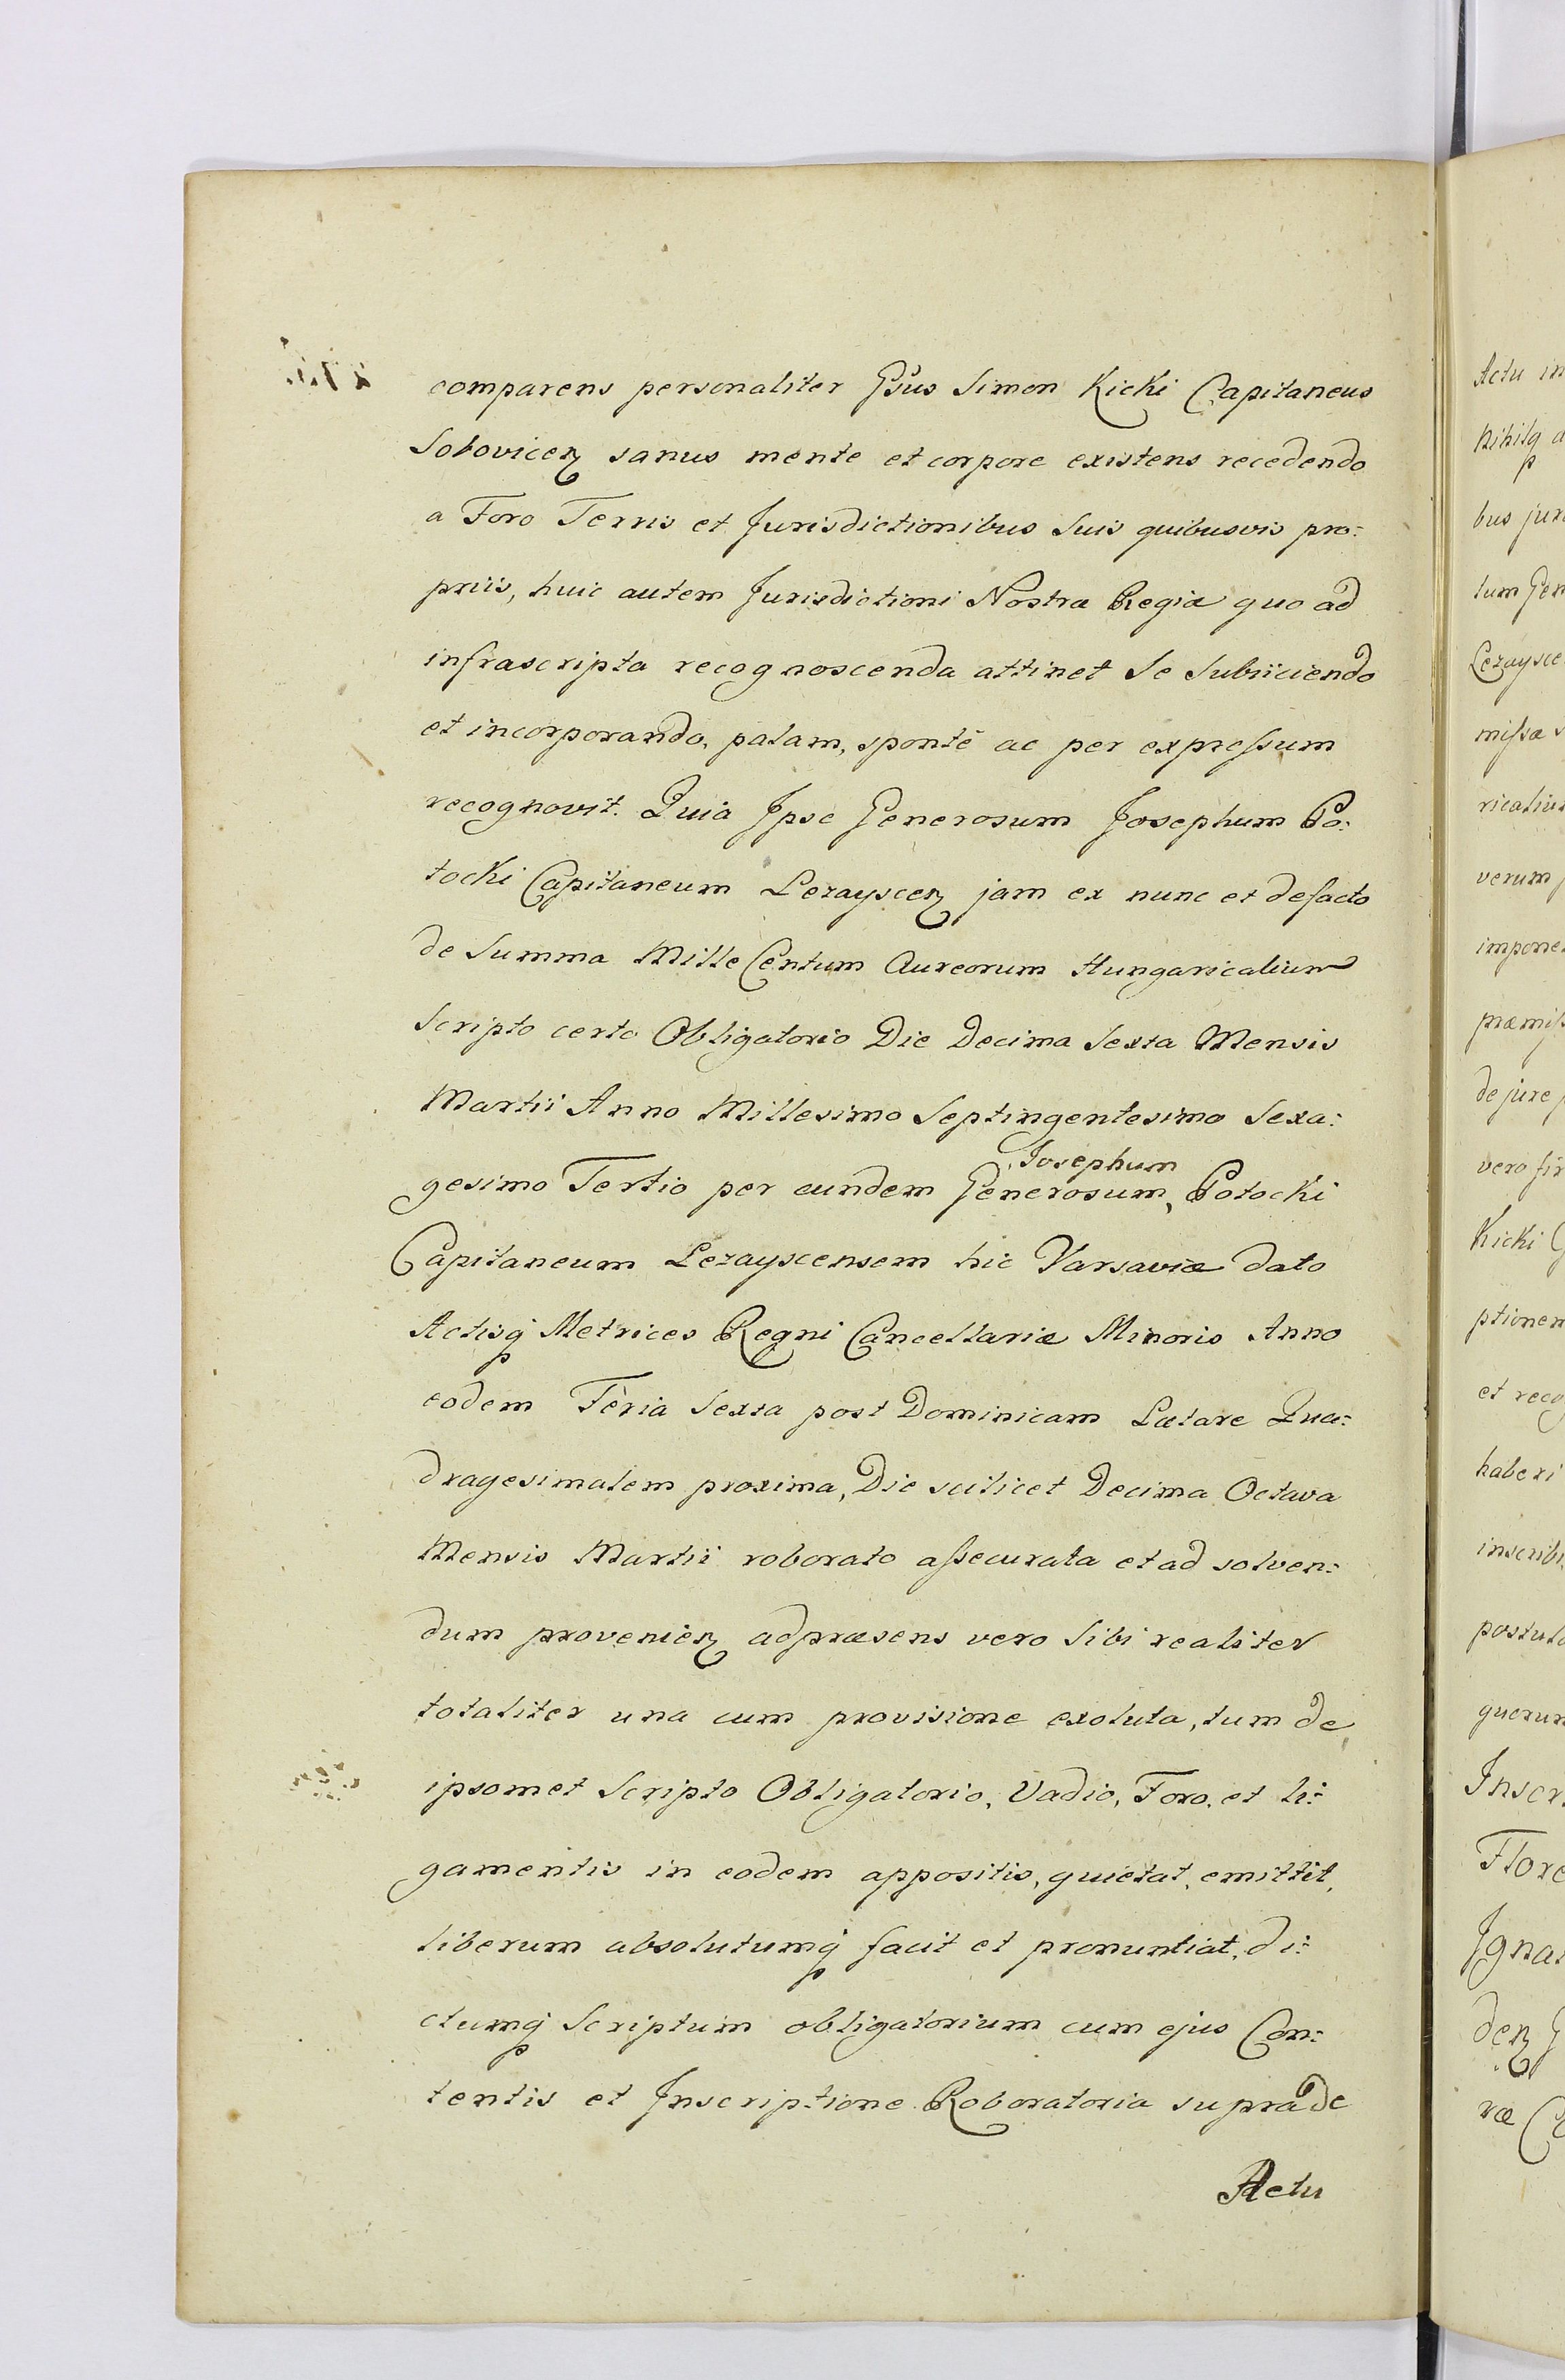 comparens personaliter Gsus Simon Kicki Capitaneus
Sobovicen sanus mente et corpore existens recedendo
a Foro Terris et Jurisdictionibus Suis quibusvis pro:
priis, huic autem Jurisdictioni Nostræ Regiæ quo ad
infrascripta recognoscenda attinet Se Subiiciendo
et incorporando, palam, sponte ac per expressum
recognovit. Quia Ipse Generosum Josephum Po:
tocki Capitaneum Lezayscen jam ex nunc et defacto
de Summa Mille Centum Aureorum Hungaricalium
Scripto certo Obligatorio Die Decima Sexta Mensis
Martii Anno Millesimo Septingentesimo Sexa:
Josephum
gesimo Tertio per eundem Generosum, Potocki
Capitaneum Lezayscensem hic Varsaviæ dato
Actisq Metrices Regni Cancellariæ Minoris Anno
eodem Feria Sexta post Dominicam Lætare Qua:
dragesimalem proxima, Die scilicet Decima Octava
Mensis Martii roborato assecurata et ad solven:
dum provenien adpræsens vero Sibi realiter
totaliter una cum provisione exoluta, tum de
ipsomet Scripto Obligatorio, Vadio, Foro, et li:
gamentis in eodem appositis, quietat, emittit,
liberum absolutumq facit et pronuntiat, di:
ctumq Scriptum obligatorium cum ejus Con:
tentis et Inscriptione Roboratoria supra de
Actu
Actu in
Nihilq
bus jur
tum Gen
Lezaysce
missæ
verum
impone
præmis
de jure
vero
Kicki
ptionem
et reco
haberi
inscrib
postul
quorum
Inscr
Flore
Igna
den
ræ